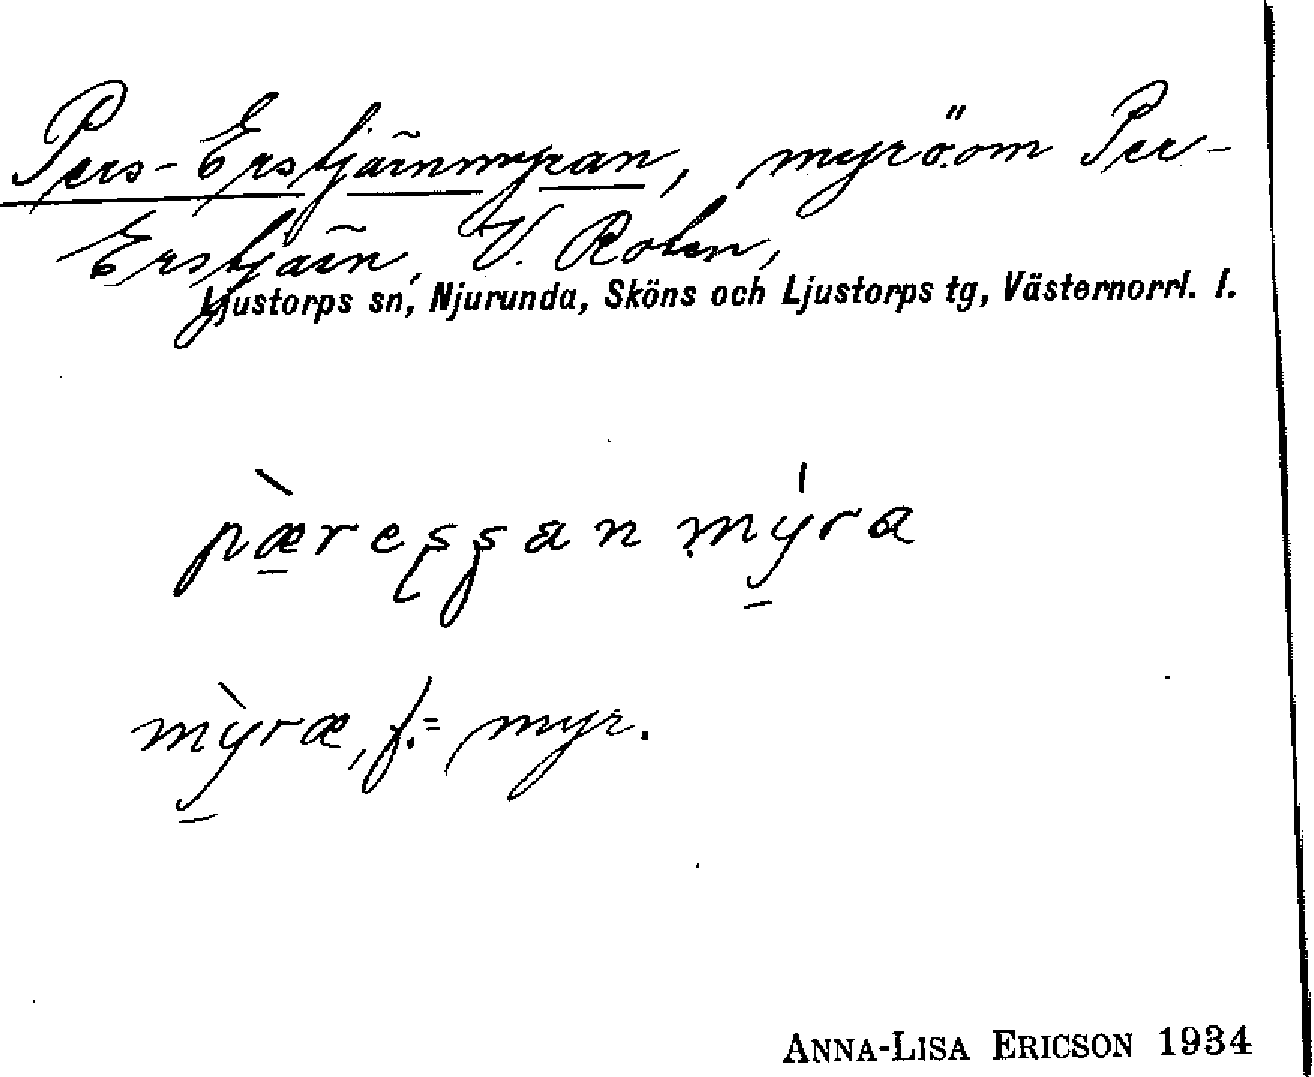 Pers-Erstjärnmyran, myr ö. om Per-
Erstjärn, V. Roten,
Ljustorps sn, Njurunda, Sköns och Ljustorps tg, Västernorrl. l.
pæ̀reʂʂan mýra
mỳræ, f. = myr.
ANNA-LISA ERICSON 1934